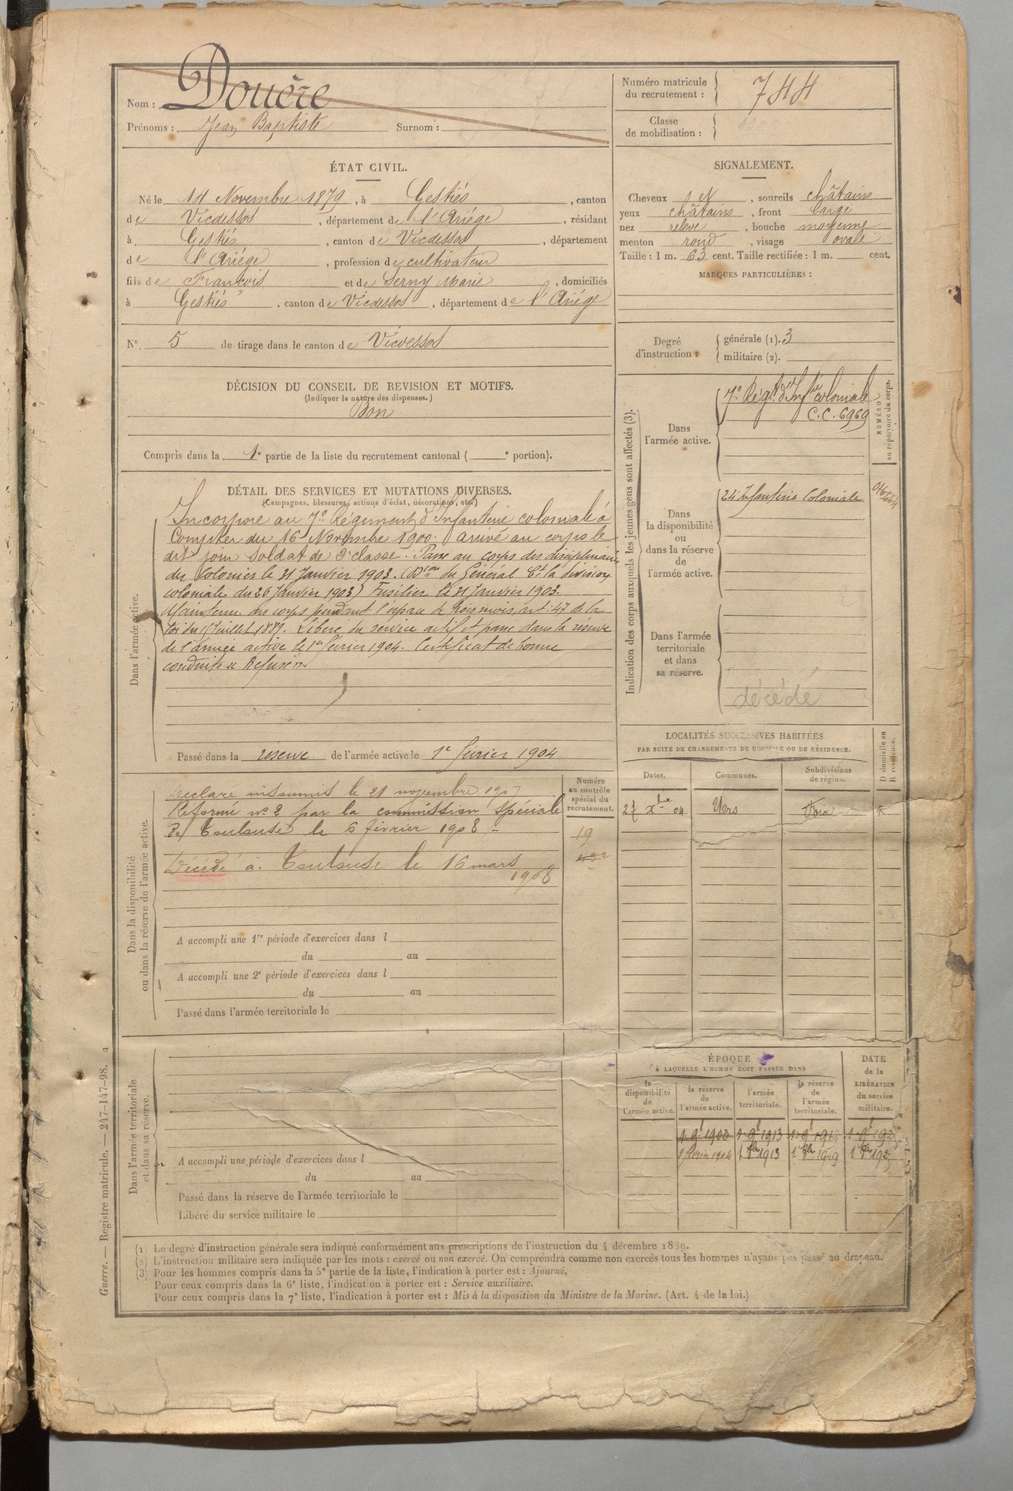 Nom : Douère
Prénoms : Jean Baptiste Surnom :
Numéro matricule
du recrutement : 744
Classe
de mobilisation :
ÉTAT CIVIL.
Né le 14 Novembre 1879, à Gestiés, canton
de Vicdessos, département de l'Ariége, résidant
à Gestiés, canton de Vicdessos, département
de l'Ariége, profession de cultivateur
fils de François et de Serny Marie, domiciliés
à Gestiés, canton de Vicdessos, département de l'Ariége
N° 5 de tirage dans le canton de Vicdessos
SIGNALEMENT.
Cheveux et, sourcils châtains
yeux châtains, front large
nez relevé, bouche moyenne
menton rond, visage ovale
Taille : 1 m. 63 cent. Taille rectifiée : 1 m. cent.
MARQUES PARTICULIÈRES :
Degré
d'instruction :
générale (1). 3
militaire (2).
DÉCISION DU CONSEIL DE REVISION ET MOTIFS.
(Indiquer la nature des dispenses.)
Bon
Compris dans la 1e partie de la liste du recrutement cantonal ( e portion).
DÉTAIL DES SERVICES ET MUTATIONS DIVERSES.
(Campagnes, blessures, actions d'éclat, décorations, etc.)
Dans l'armée active.
Incorporé au 7e Régiment d'Infanterie coloniale à
compter du 16 Novembre 1900. Arrivé au corps le
dit jour Soldat de 2e classe. Passé au corps des disciplinaires
des Colonies le 21 Janvier 1903. (Don du Général Ct la division
coloniale du 20 Janvier 1903) Fusilier le 21 Janvier 1903.
Maintenu au corps pendant l'espace de mois art. 47 de la
loi du 15 Juillet 1889. Libéré du service actif et passé dans la réserve
de l'armée active le 1er février 1904. Certificat de bonne
conduite « Refusé »
Passé dans la réserve de l'armée active le 1er février 1904
Indication des corps auxquels les jeunes gens sont affectés (3).
Dans
l'armée active.
7e Régt d'Infie coloniale
C.C. 6969
NUMÉRO
au répertoire du corps
Dans
la disponibilité
ou
dans la réserve
de
l'armée active.
24 Infanterie Coloniale
Dans l'armée
territoriale
et dans
sa réserve.
décédé
LOCALITÉS SUCCESSIVES HABITÉES
PAR SUITE DE CHANGEMENTS DE DOMICILE OU DE RÉSIDENCE.
Dates. Communes. Subdivisions
de région.
D domicile ou
R résidence.
Xbre 04 R
Dans la disponibilité
ou dans la réserve de l'armée active.
Numéro
au contrôle
spécial du
recrutement.
19
Déclaré insoumis le 21 novembre 1907
Réformé n° 2 par la commission spéciale
de Toulouse le 6 février 1908 -
Décédé à Toulouse le 16 mars
1908
A accompli une 1re période d'exercices dans l
du au
A accompli une 2e période d'exercices dans l
du au
Passé dans l'armée territoriale le
Dans l'armée territoriale
et dans sa réserve.
A accompli une période d'exercices dans l
du au
Passé dans la réserve de l'armée territoriale le
Libéré du service militaire le
ÉPOQUE
À LAQUELLE L'HOMME DOIT PASSER DANS
la
disponibilité
de
l'armée active.
la réserve
de
l'armée active.
l'armée
territoriale.
la réserve
de
l'armée
territoriale.
DATE
de la
LIBÉRATION
du service
militaire.
1913
1 février 1904 1913 1919
(1) Le degré d'instruction générale sera indiqué conformément aux prescriptions de l'instruction du 4 décembre 1889.
(2) L'instruction militaire sera indiquée par les mots : exercé ou non exercé. On comprendra comme non exercés tous les hommes n'ayant pas passé au drapeau.
(3) Pour les hommes compris dans la 5e partie de la liste, l'indication à porter est : Ajourné.
Pour ceux compris dans la 6e liste, l'indication à porter est : Service auxiliaire.
Pour ceux compris dans la 7e liste, l'indication à porter est : Mis à la disposition du Ministre de la Marine. (Art. 4 de la loi.)
Guerre. — Registre matricule. — 247-147-98.